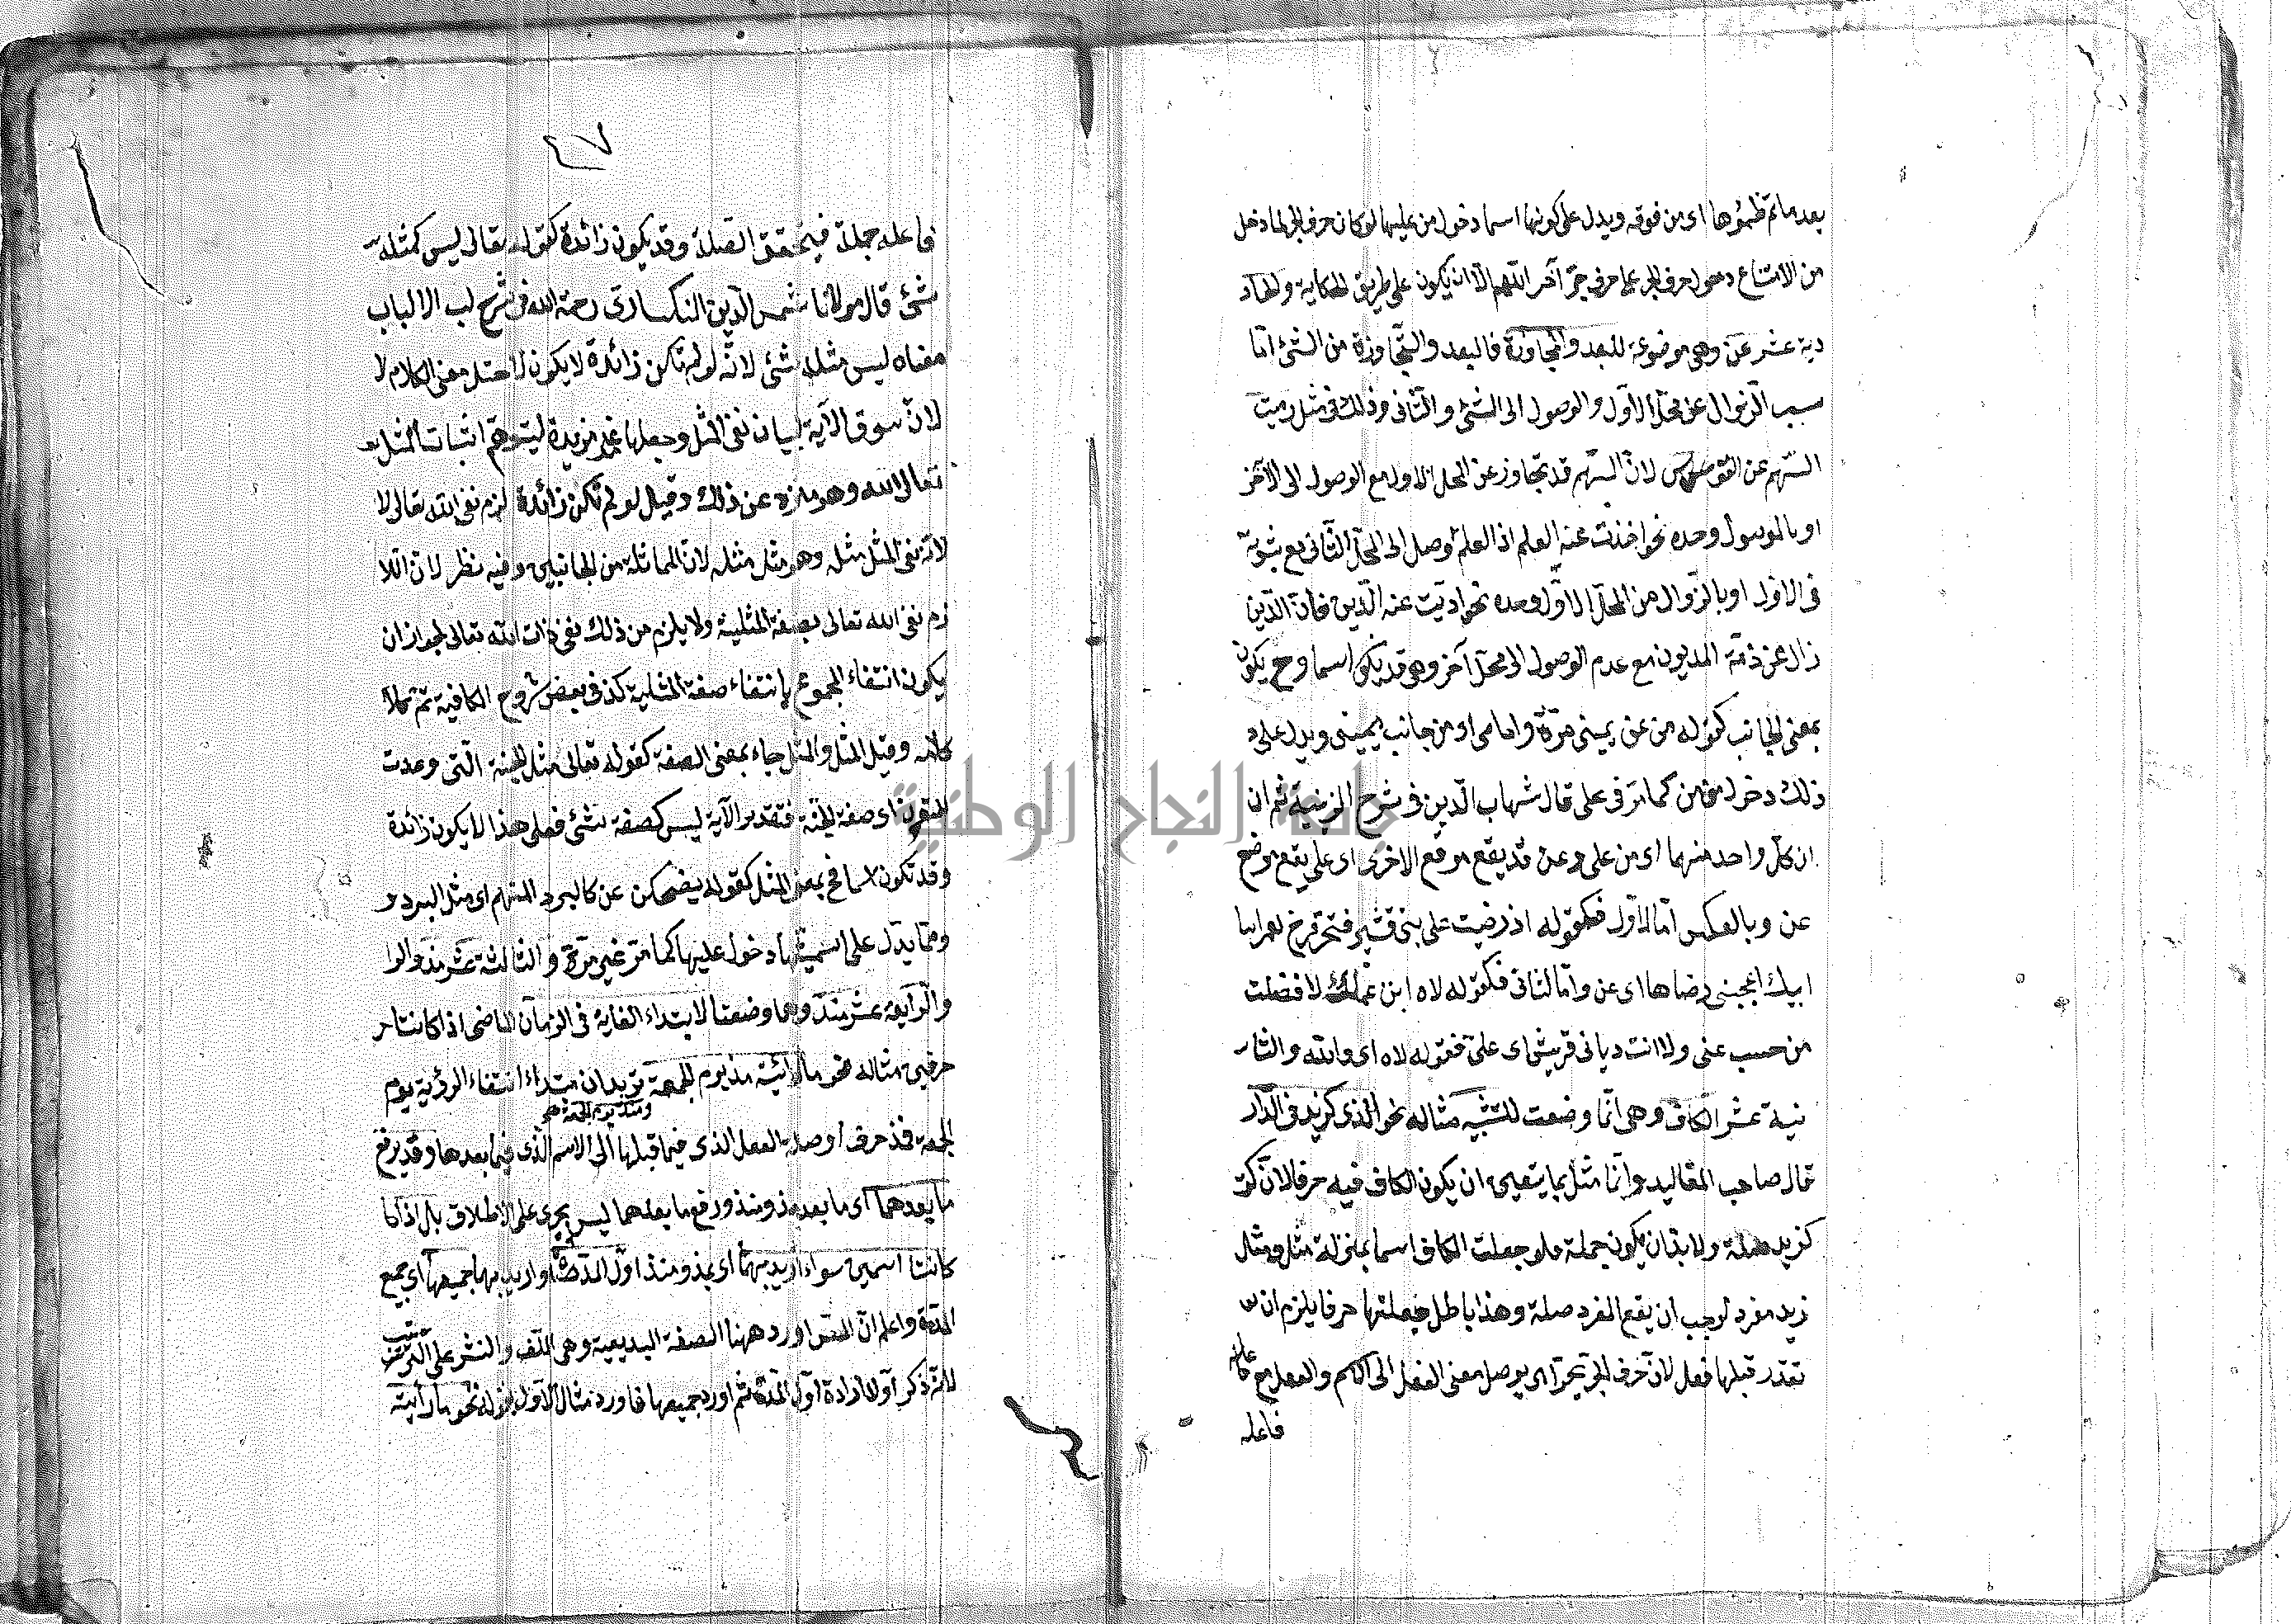 بعد ما تم ظمؤها اى من فوقه ويدل على كونها اسما دخول من عليها لو كان حرف الجر لما دخل
من الامتناع دخول حرف الجر على حرف جر آخر اللهم الا ان يكون على طريق الحكاية والحاد
دية عشر عن وهى موضوعة للبعد والمجاوزة فالبعد والتجاوزة من الشئ اما
سبب الزوال عن محل الاول والوصول الى الشئ والثانى وذلك فى مثل رميت
السهم عن القوس لان السهم قد تجاوز عن المحل الاول مع الوصول الى الآخر
او بالوصول وحده نحو اخذت عنه العلم اذ العلم وصل الى المحل الثانى مع ثبوته
فى الاول او بالزوال من المحل الاول وحده نحو اديت عنه الدين فان الدين
زال عن ذمة المديون مع عدم الوصول الى محل آخر وهى قد يكون اسما وح يكون
بمعنى الجانب كقوله من عن يمينى مرة وامامى اى من جانب يمينى ويدل على
ذلك دخول من كما مر فى على قال شهاب الدين فى شرح الزينية ثم ان
ان كل واحد منهما اى من على وعن قد يقع موقع الاخرى اى على يقع موضع
عن وبالعكس اما الاول فكقوله اذ رضيت على بنى قشير لعمر
ابيك اعجبنى رضاها اى عن واما الثانى فكقوله لاه ابن عمك لا فضلت
من حسب عنى ولا انت ديانى قريش اى على فقوله لاه اى والله والثا
نية عشر الكاف وهى انما وضعت للتشبيه مثاله نحو الذى كزيد فى الدار
قال صاحب المقاليد وانما مثل بما يتعين ان يكون الكاف فيه حرفا لان
كزيد صلة ولا بد ان يكون جملة فلو جعلت الكاف اسما بمنزلة مثل ومثل
زيد مفرد لوجب ان يقع المفرد صلة وهذا باطل فجعلتها حرفا يلزم ان
تقدر قبلها فعل لان حرف الجر تجر اى يوصل معنى الفعل الى الاسم والفعل مع فا
عله
فاعله
٤٧
فاعله جملة فيتحقق الصلة وقد يكون زائدة كقوله تعالى ليس كمثله
شئ قال مولانا شمس الدين النكسارى رحمة الله فى شرح لب الالباب
معناه ليس مثله شئ لانه لو لم تكن زائدة لا يكون لاختل معنى الكلام لا
لان سوق الآية لبيان نفى المثل وجعلها غير مزيدة ليتوهم اثبات المثل
تعالى الله وهو منزه عن ذلك وقيل لو لم تكن زائدة لزم نفى الله تعالى لا
لانه نفى المثل مثله وهو مثل مثله لان المماثلة من الجانبين وفيه نظر لان اللا
زم نفى الله تعالى بصفة المثلية ولا يلزم من ذلك نفى ذات الله تعالى لجواز ان
يكون انتفاء المجموع بانتفاء صفة المثلية كذا فى بعض شروح الكافية تم
كلامه وقيل المثل والمثل جاء بمعنى الصفة كقوله تعالى مثل الجنة التى وعدت
المتقون اى صفة الجنة فتقدير الآية ليس كصفة شئ فعلى هذا لا يكون زائدة
وقد تكون اسما فح بمعنى المثل كقوله يضحكن عن كالبرد المنهم اى مثل البرد
ومما يدل على اسميتها دخول عليها كما مر غير مرة والثالثة عشر مذ والرا
والرابعة عشر منذ وهما وضعتا لابتداء الغاية فى الزمان الماضى اذا كانتا حر
حرفين مثاله نحو ما رأيته مذ يوم الجمعة تريد ان مبتداء انتفاء الرؤية يوم
ومنذ يوم الجمعة
الجمعة فمذ حرف اوصلة الفعل الذى فيما قبلها الى الاسم الذى فيما بعدها وقد يرفع
ما بعدهما اى ما بعد مذ ومنذ ورفع ما بعدهما ليس يجرى على الاطلاق بل اذا كا
كانتا اسمين سواء اريد بهما اى بمذ ومنذ اول المدة او اريد بهما جميعها اى جميع
المدة واعلم ان المص اورد ههنا الصفة البديعية وهى اللف والنشر على الترتيب
لانه ذكر اولا ارادة اول المدة ثم اورد جميعها فاورد مثال الاول بقوله نحو ما رأيته
جامعة النجاح الوطنية